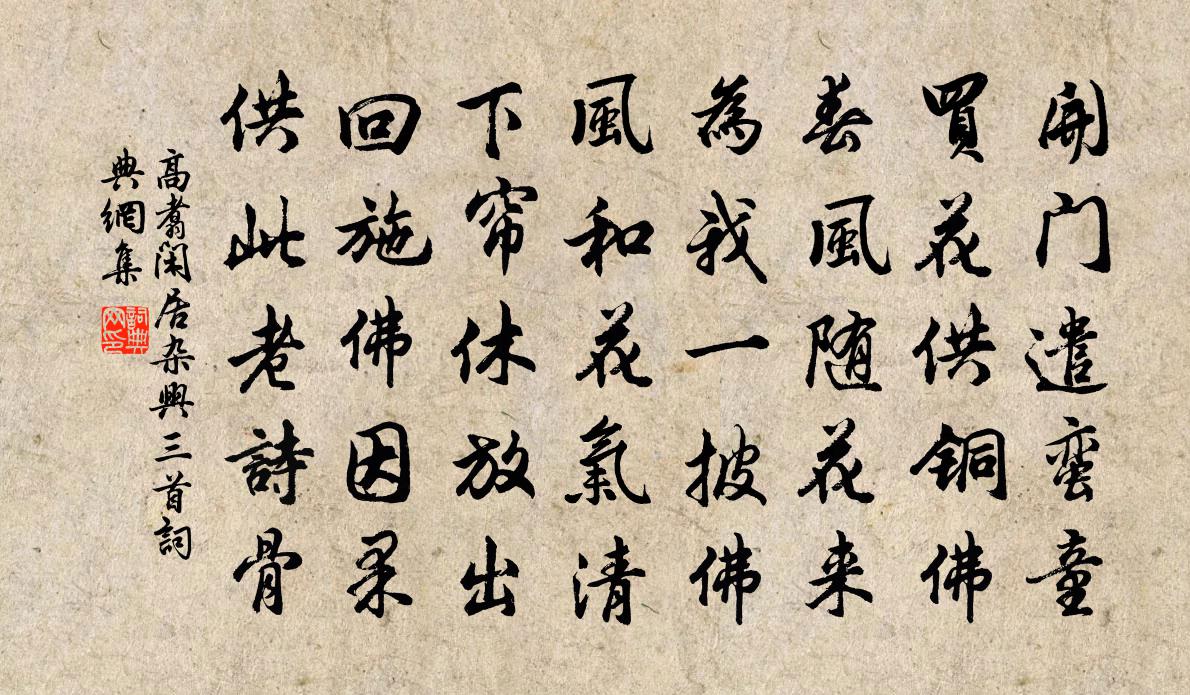 開門遣蛮童
買花供铜佛
春風随花来
為我一披佛
風和花氣清
下帘休放出
回施佛因果
供此老詩骨
高翥闲居杂興三首詞
典網集
詞典
网印